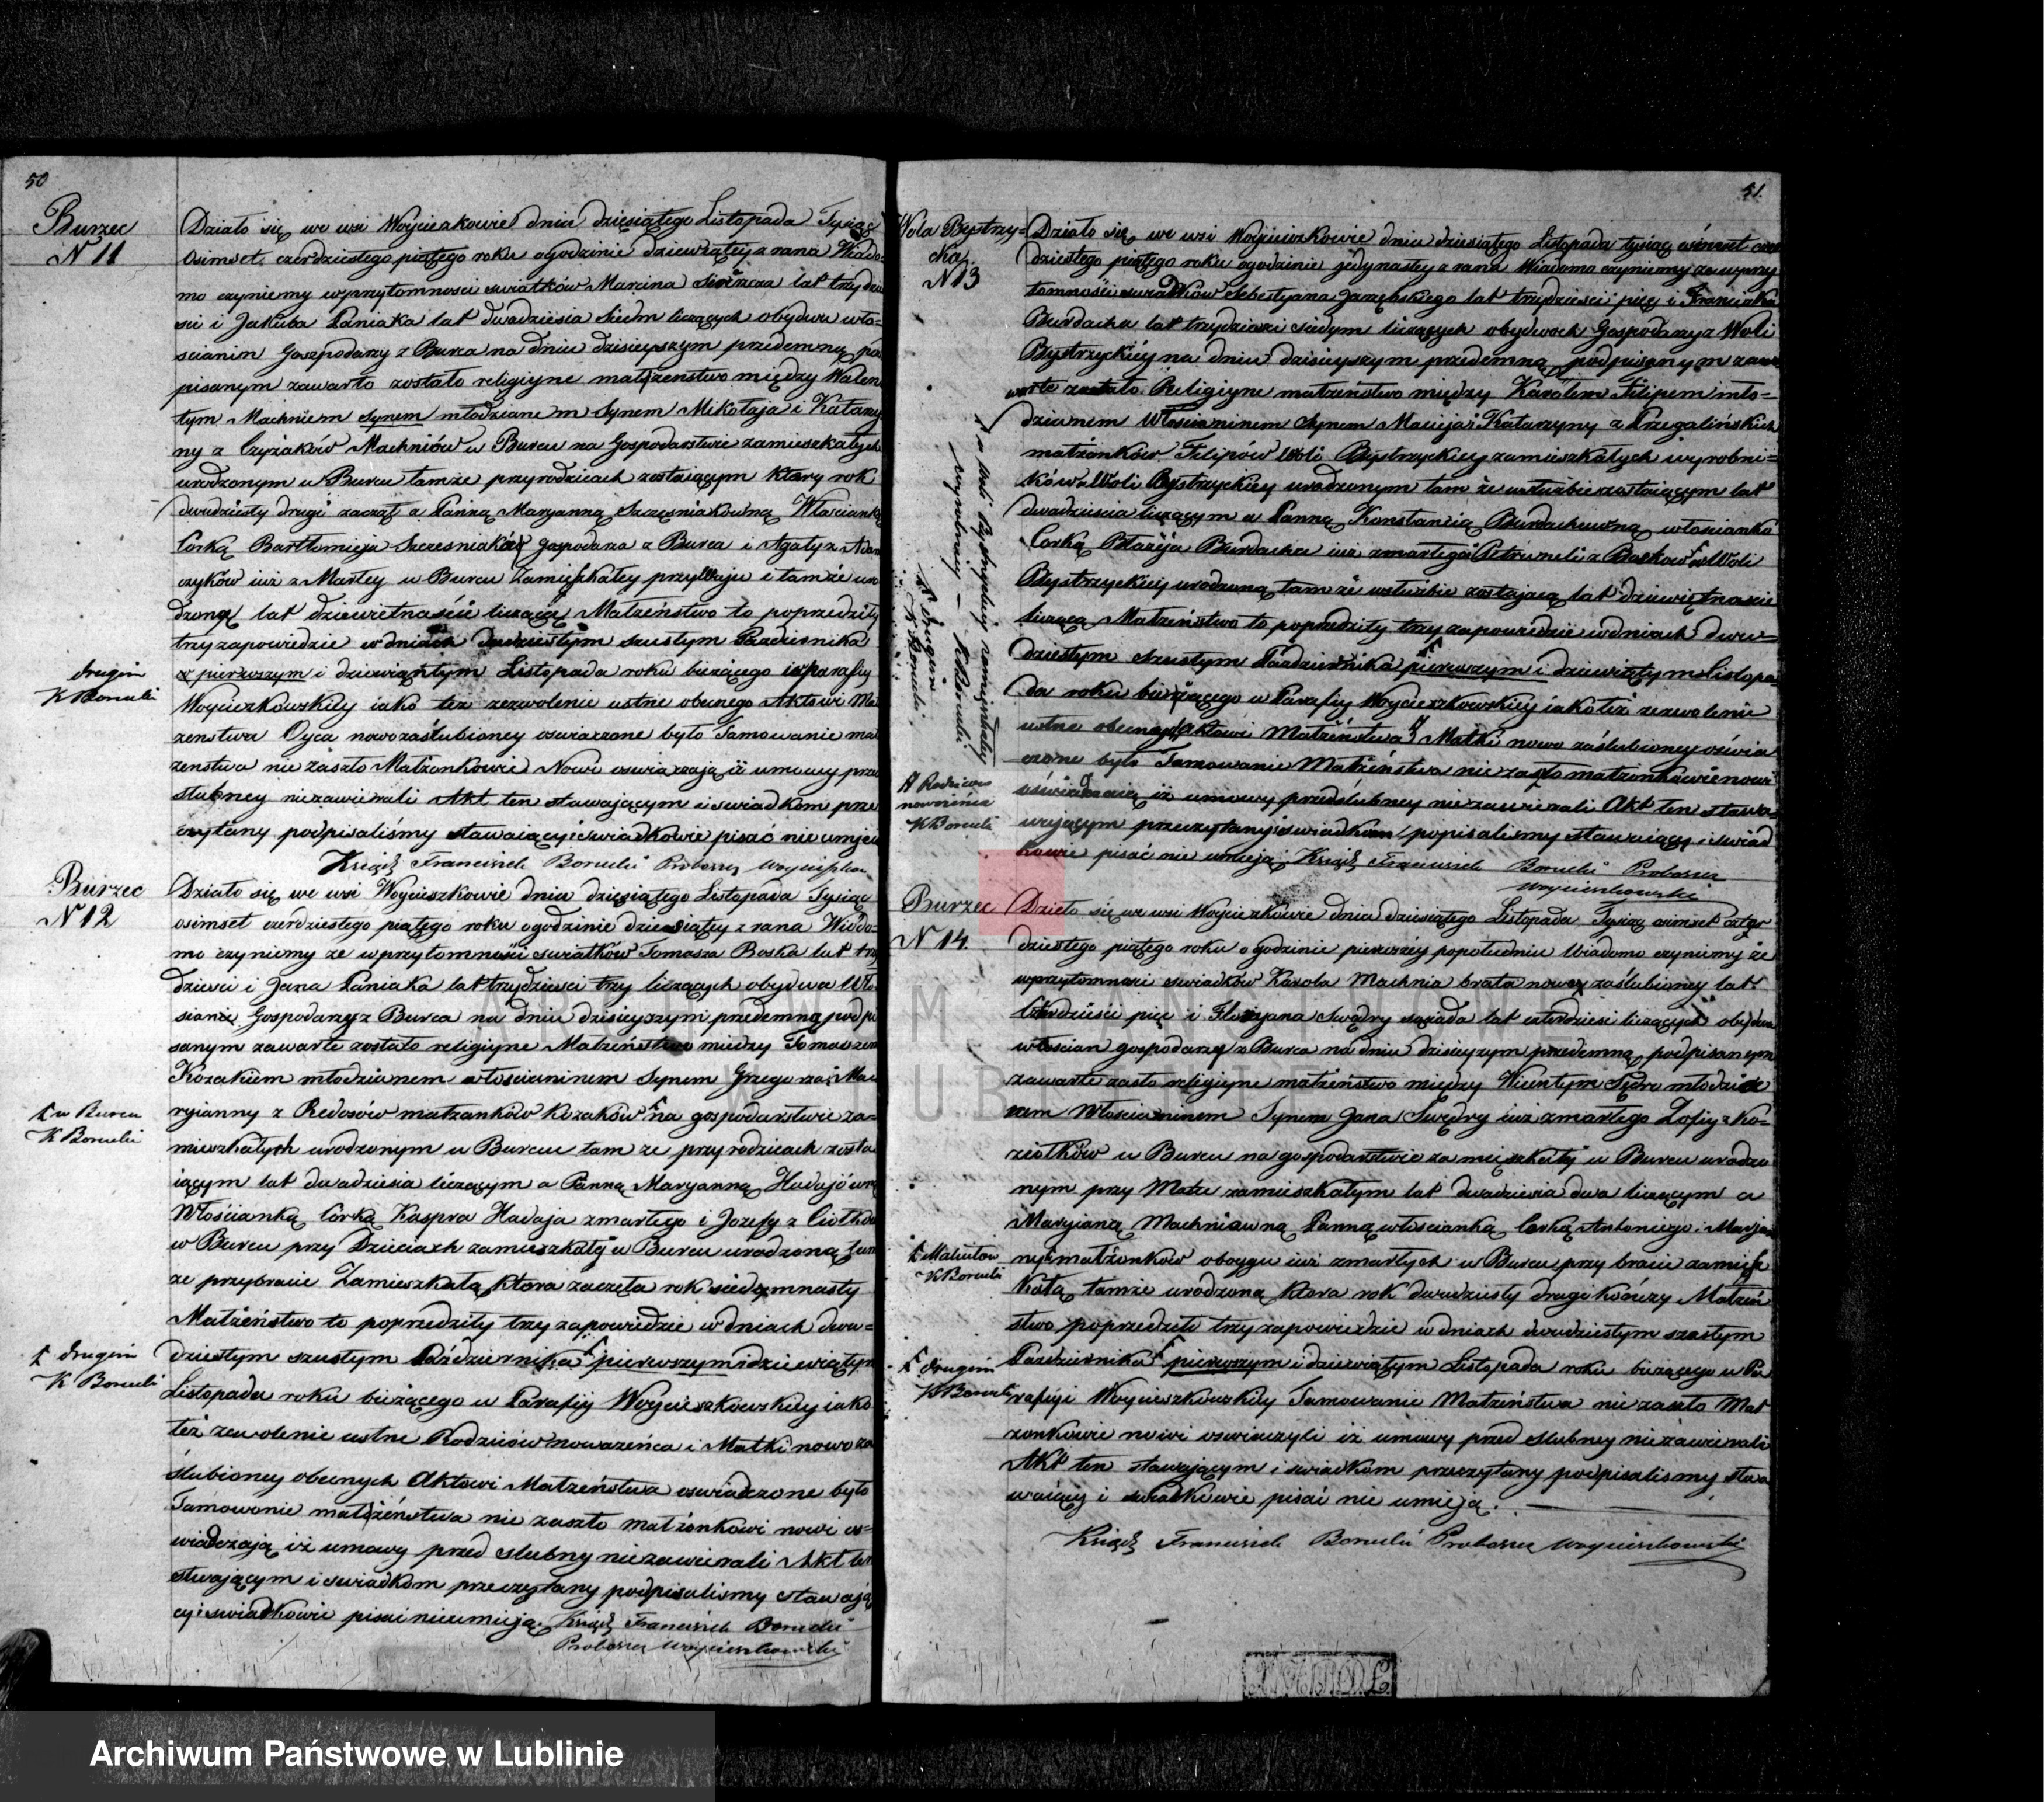 50
Burzec
N 11
Działo się we wsi Woycieszkowie dnia dziesiątego Listopada Tysiąc
osimset czerdziestego piątego roku ogodzinie dziewiątey z rana Wiado-
mo czyniemy wprzytomnosci swiatków Marcina lat trzydzie
sci i Jakuba Paniaka lat dwadziesia siedm liczących obydwu wło-
scianin Gospodarzy z Burca na dniu dzisieyszym przedemną po
pisanym zawarto zostało religiyne małżenstwo między Walen
tym Machniem synem młodzianem Synem Mikołaja i Katarzy
ny z Czyżaków Machniów w Burcu na Gospodarstwie zamieszkałych
urodzonym w Burcu tamże przyrodzicach zostaiącym ktory rok
dwudziesty drugi zaczął a Panną Maryanną Szczęsniakówną Włoscianką
Corką Bartłomieja Szczesniaka Gospodarza z Burca i Agaty z Adam
czyków iuż z Marłey w Burcu Zamieszkałey przy i tamże uro
dzoną lat dziewietnaście liczącą Małzeństwo to poprzedziły
trzy zapowiedzie w dniach dwudziestym szustym Pazdziernika
drugim
K Borucki
w pierwszym i dziewiąntym Listopada roku bieżącego w parafiy
Woycieszkowskiey iako też zezwolenie ustne obecnego Aktowi Ma
zenstwa Oyca nowozaślubioney oswiaczone było Tamowanie ma
zenstwa nie zaszło Małżonkowie Nowi oswiaczają iż umowy prze
slubney niezawierali Akt ten stawającym i swiadkom prze
czytany podpisaliśmy stawaiący i swiadkowie pisać nie umieją
Ksiądz Franciszek Borucki Proboszcz Woycieszkow
Burzec
N 12
Działo się we wsi Woycieszkowie dnia dziesiątego Listopada Tysiąc
osimset czerdziestego piątego roku ogodzinie dziesiątey z rana Wiado-
mo czyniemy ze wprzytomności swiatków Tomasza Boska lat trzy
dziesci i Jana Paniaka lat trzydziesci trzy liczących obydwa Wło-
sianie Gospodarzy z Burca na dniu dzisieyszym przedemną podpi
sanym zawarte zostało religiyne Małzeństwo miedzy Tomaszem
Kozakiem młodzianem włoscianinem Synem Grzegorza i Ma
ryianny z Redosów małzanków Kozaków na gospodarstwie za-
w Burcu
K Borucki
mieszkałych urodzonym w Burcu tam ze przy rodzicach zosta
iącym lat dwadziesia liczącym a Panną Maryanną Hadajówną
Włościanką Corką Kaspra Hadaja zmarłego i Jozefy z
w Burcu przy Dzieciach zamieszkałej w Burcu urodzoną tam
ze przybracie Zamieszkałą ktora zaczęła rok siedymnasty
Małżeństwo to poprzedziły trzy zapowiedzie w dniach dwu-
dziestym szustym Października pierwszym i dziewiątym
drugim
K Borucki
Listopada roku bieżącego w Parafiy Woycieszkowskiey iako
też zewolenie ustne Rodziców nowozeńca i Matki nowo za
ślubioney obecnych Aktowi Małzeństwa oswiadzone było
Tamowonie małżeństwa nie zaszło małżonkowi nowi os-
wiadczają iż umowy przed slubny niezawierali Akt ten
stwającym i swiadkom przeczytany podpisalismy stawają
cy i swiadkowie pisai nieumieją. Ksiądz Franciszek Borucki
Proboszcz Woycieszkowski
51.
Wola Bystrzy-
cka.
N 13
Działo się we wsi Woycieszkowie dniu dziesiątego Listopada tysiąc osimset czer
dziestego piątego roku ogodzinie jedynastey z rana Wiadomo czyniemy ze wprzy
tomności swiadków Sebestyana Jarzębskiego lat trzydziesci pięć i Franciszka
Burdacha lat trydziesci siedym liczących obydwoch Gospodarzy z Woli
Bystrzyckiey na dniu dzisieyszym przedemną podpisanym zawa
rte zostało Religiyne małżeństwo między Karolem Filipem mło-
dzianem Włoscianinem Synem Macieja i Katarzyny z Przegalińskich
małżonków Filipów Woli Bystrzyckiey zamieszkałych wyrobni-
ków w Woli Bystrzyckiey urodzonym tam że w służbie zostaiącym lat
dwadziescia liczącym a Panną Konstancią Burdachowną włosianką
Corką Błażeja Burdacha iuż zmarłego i Petruneli z Boskow w Woli
Bystrzyckiey urodzoną tam ze wsłużbie zostającą lat dziewiętnascie
liczącą Małżeństwo to poprzedziły trzy zapowiedzie wdniach dwu-
dziestym szustym Październik pierwszym i dziewiątym Listopa-
da roku bieżącego w Parafiy Woycieszkowskiey iako też zezwolenie
ustne obecney Aktowi Małżeństwa Matki nowo zaślubioney oświa
czone było Tamowanie Małżeństwa nie zaszło małżonkowie nowi
oświadczaią iż umowy przedslubney niezawierali Akt ten stawa-
wającym przeczytany i swiadkom popisalismy stawaiący i swiad
kowie pisać nie umieją. Ksiądz Franciszek Borucki Proboszcz
Woycieszkowski
w Woli Bystrzyckiey zamieszkałey
wyrobnicy — K Borucki
drugim
K Borucki
Rodziców
nowozenca
K Borucki
Burzec
N 14
Dzieło się we wsi Woycieszkowie dnia dziesiątego Listopada Tysiąc osimset czter
dziestego piątego roku o godzinie pierwszéy popołudniu Wiadomo czyniemy że
wprzytomnosci swiadków Karola Machnia brata nowo zaślubioney lat
czterdzieści pięc i Floryjana Swędry sąsiada lat czterdziesi liczących obydwu
włoscian gospodarzy z Burca na dniu dzisieyszym przedemną podpisanym
zawarte zasło religiyne małżeństwo między Wicentym młodzia
nem Włoscianinem Synem Jana Swędry iuż zmarłego Zofiy z Ko-
ziołków w Burcu na gospodarstwie zamięszkałey w Burcu urodzo
nym przy Matce zamieszkałym lat dwadziesia dwa liczącym a
Maryianą Machniowną Panną włoscianką Corką Antoniego i Maryan
ny małżonków oboygu iuż zmarłych w Burcu przy bracie zamiesz
Małutow
K Borucki
kałą tamze urodzoną ktora rok dwudziesty drugi kończy Małzeń
stwo poprzedzilo trzy zapowiedzie w dniach dwudziestym szostym
Pazdziernika pierwszym i dziewiątym Listopada roku bieżącego w Pa
drugim
K Borucki
rafiyi Woycieszkowskiey Tamowanie Małzeństwa nie zaszło Mał
zonkowie nowi oswiaczyli iż umowy przed slubney niezawierali
Akt ten stawającym i swiadkom przeczytany podpisalismy stawa
waiący i swiadkowie pisai nie umieją.
Ksiądz Franciszek Borucki Proboszcz Woycieszkowski
ARCHIWUM PAŃSTWOWE
W LUBLINIE
Archiwum Państwowe w Lublinie